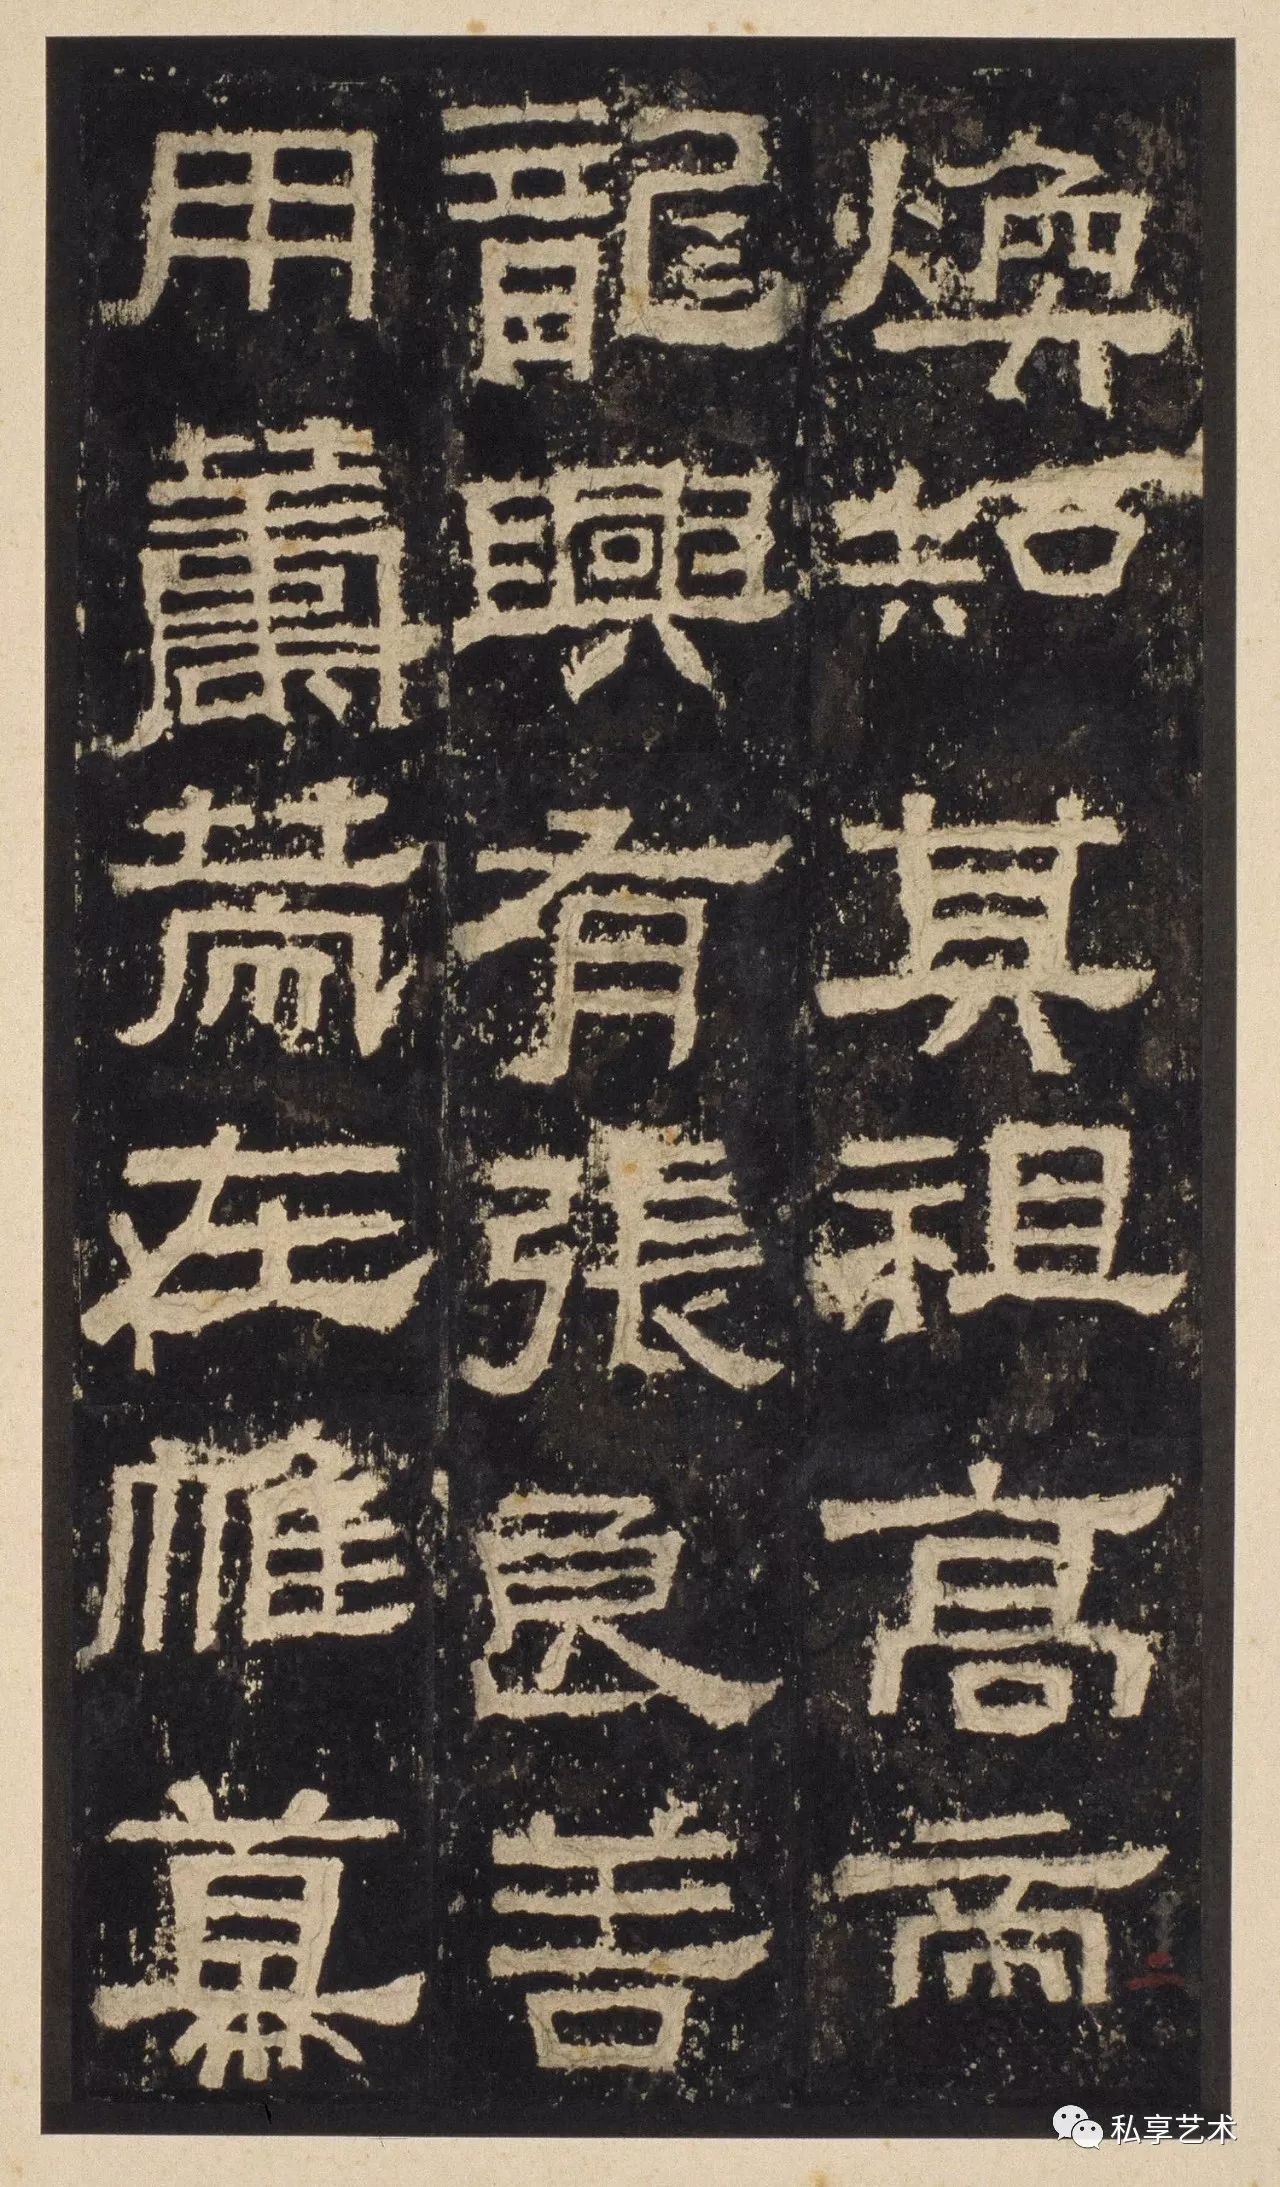 煥知其祖高帝
龍興有張良善
用籌策在帷幕
私享艺术